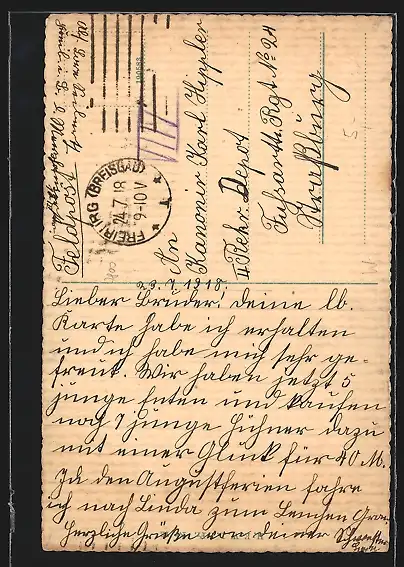 Feldpost
FREIBURG (BREISGAU)
24.7.18
9-10 V
190583
An
Kanonir Karl Kippler
II Rekr. Depot
Fußarth. Rgt № 24
Straßburg
23.7.1918.
Lieber Bruder! deine lb.
Karte habe ich erhalten
und ich habe mich sehr ge-
freut. Wir haben jetzt 5
junge Enten und kaufen
noch 7 junge Hühner dazu
mit einer Gluck für 40 M.
In den Augustferien fahre
ich nach Linda zum Lenchen
Herzliche Grüße von deiner Schwester